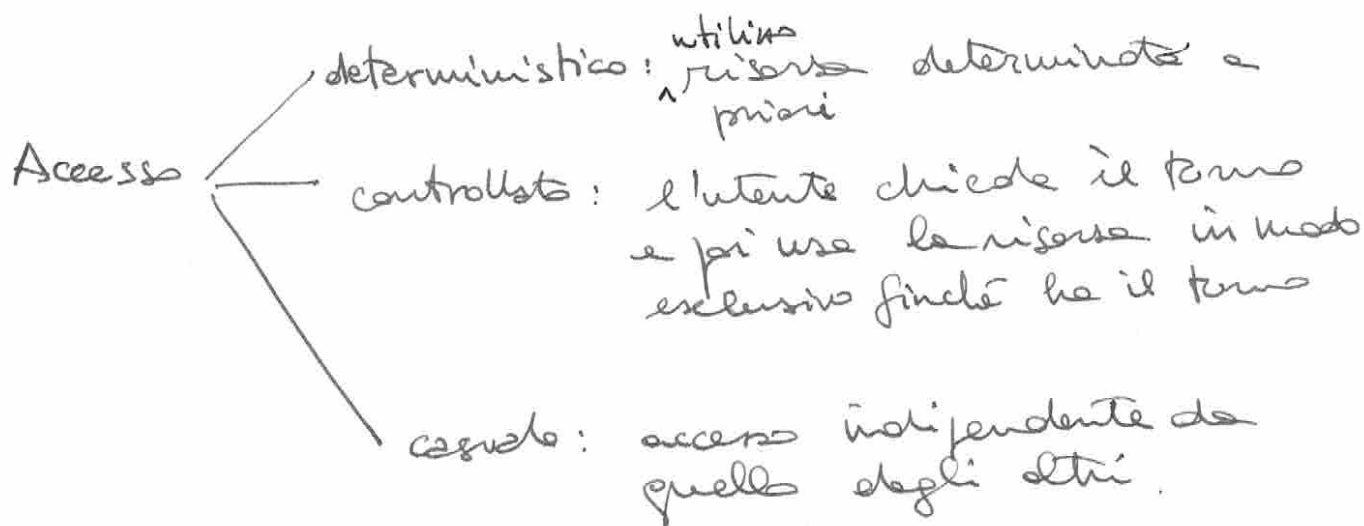 deterministico: utilizzo risorsa determinata a
priori
Accesso
controllato: l'utente chiede il turno
e poi usa la risorsa in modo
esclusivo finché ha il turno
casuale: accesso indipendente da
quello degli altri.